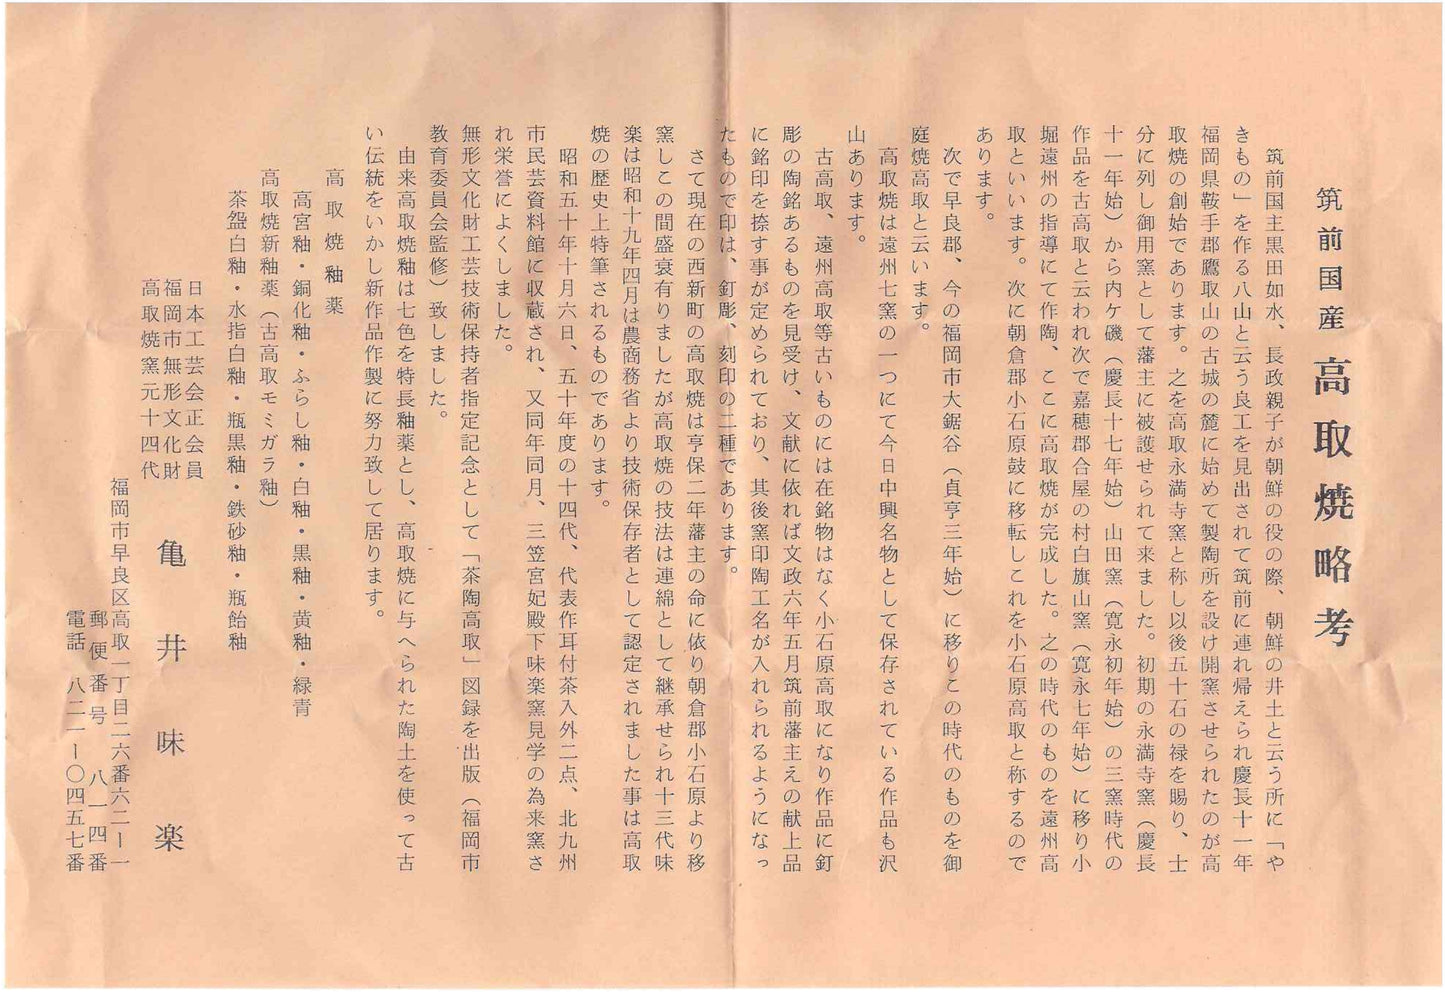 筑前国産 高取焼略考
筑前国主黒田如水、長政親子が朝鮮の役の際、朝鮮の井土と云う所に「や
きもの」を作る八山と云う良工を見出されて筑前に連れ帰えられ慶長十一年
福岡県鞍手郡鷹取山の古城の麓に始めて製陶所を設け開窯させられたのが高
取焼の創始であります。之を高取永満寺窯と称し以後五十石の禄を賜り、士
分に列し御用窯として藩主に被護せられて来ました。初期の永満寺窯（慶長
十一年始）から内ケ磯（慶長十七年始）山田窯（寛永初年始）の三窯時代の
作品を古高取と云われ次で嘉穂郡合屋の村白旗山窯（寛永七年始）に移り小
堀遠州の指導にて作陶、ここに高取焼が完成した。之の時代のものを遠州高
取といいます。次に朝倉郡小石原鼓に移転しこれを小石原高取と称するので
あります。
次で早良郡、今の福岡市大鋸谷（貞亨三年始）に移りこの時代のものを御
庭焼高取と云います。
高取焼は遠州七窯の一つにて今日中興名物として保存されている作品も沢
山あります。
古高取、遠州高取等古いものには在銘物はなく小石原高取になり作品に釘
彫の陶銘あるものを見受け、文献に依れば文政六年五月筑前藩主えの献上品
に銘印を捺す事が定められており、其後窯印陶工名が入れられるようになっ
たもので印は、釘彫、刻印の二種であります。
さて現在の西新町の高取焼は亨保二年藩主の命に依り朝倉郡小石原より移
窯しこの間盛衰有りましたが高取焼の技法は連綿として継承せられ十三代味
楽は昭和十九年四月は農商務省より技術保存者として認定されました事は高取
焼の歴史上特筆されるものであります。
昭和五十年十月六日、五十年度の十四代、代表作耳付茶入外二点、北九州
市民芸資料館に収蔵され、又同年同月、三笠宮妃殿下味楽窯見学の為来窯さ
れ栄誉によくしました。
無形文化財工芸技術保持者指定記念として「茶陶高取」図録を出版（福岡市
教育委員会監修）致しました。
由来高取焼釉は七色を特長釉薬とし、高取焼に与へられた陶土を使って古
い伝統をいかし新作品作製に努力致して居ります。
高取焼釉薬
高宮釉・銅化釉・ふらし釉・白釉・黒釉・黄釉・緑青
高取焼新釉薬（古高取モミガラ釉）
茶盌白釉・水指白釉・瓶黒釉・鉄砂釉・瓶飴釉
日本工芸会正会員
福岡市無形文化財
高取焼窯元十四代
亀井味楽
福岡市早良区高取一丁目二六番六二ー一
郵便番号 八一四番
電話 八二一ー〇四五七番